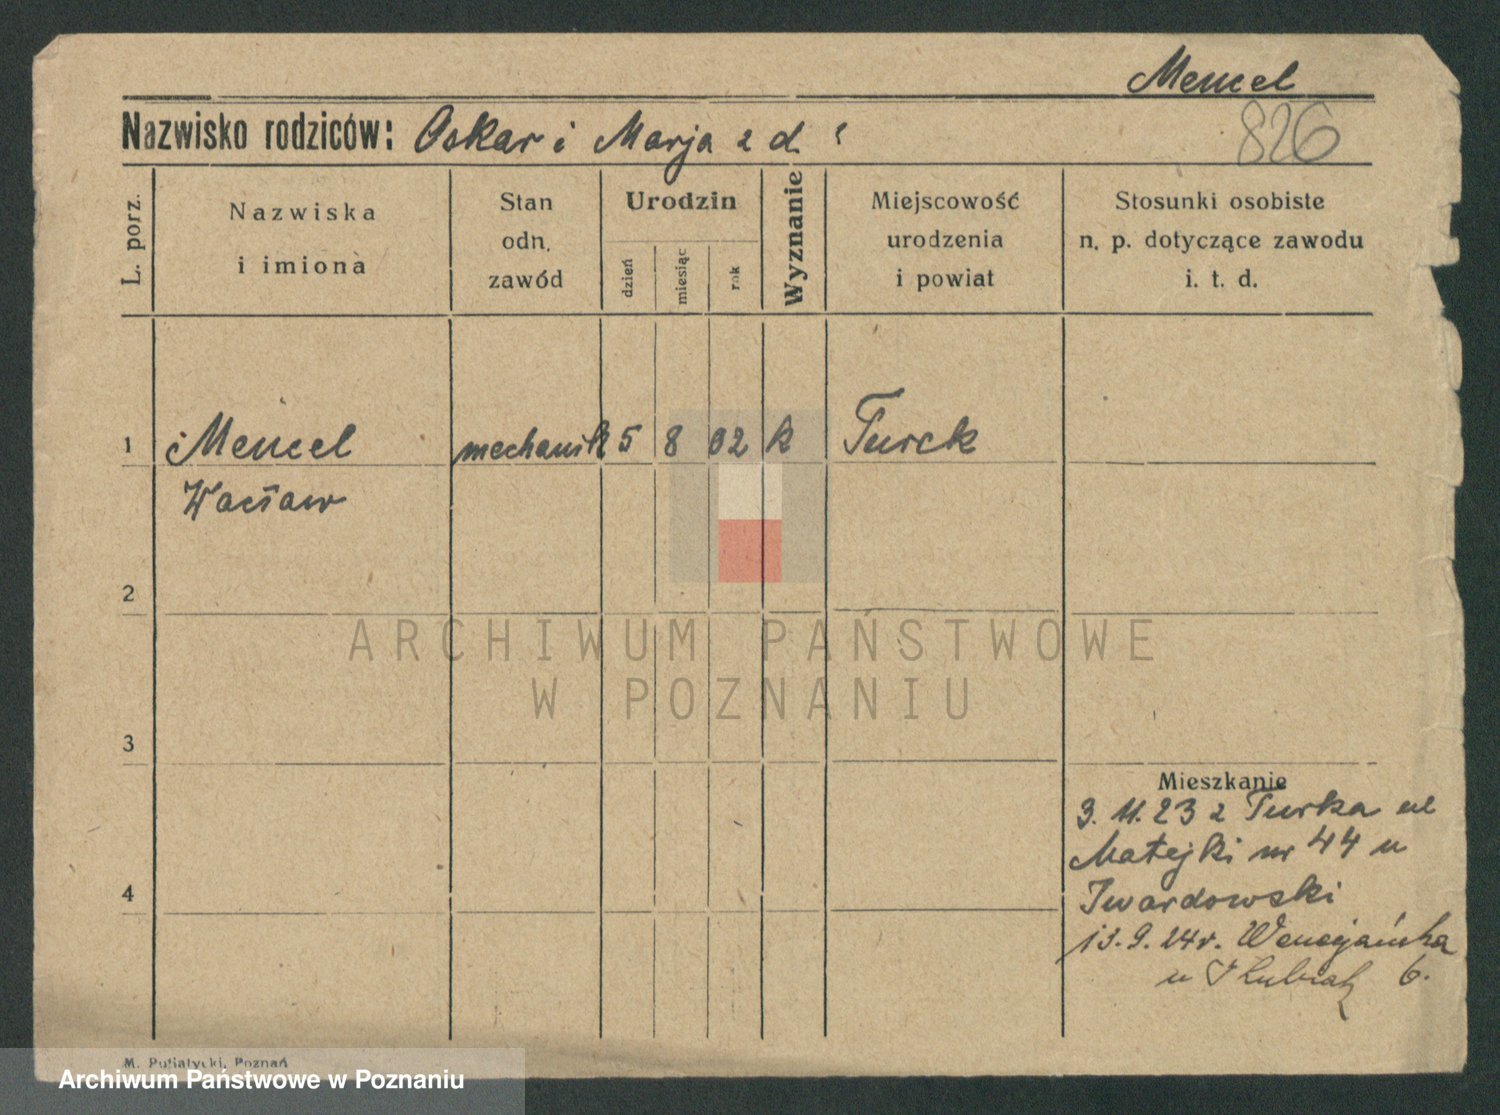 Mencel
826
Nazwisko rodziców: Oskar i Marja z d. ?
L. porz.
Nazwiska
i imiona
Stan
odn.
zawód
Urodzin
dzień
miesiąc
rok
Wyznanie
Miejscowość
urodzenia
i powiat
Stosunki osobiste
n. p. dotyczące zawodu
i. t. d.
1 Mencel mechanik 5 8 02 k Turek
Wacław
2
ARCHIWUM PAŃSTWOWE
W POZNANIU
3
Mieszkanie
3. 11. 23 z Turka ul
Matejki nr 44 u
Twardowski
4
13. 9. 24 r. Wenecjańska
u 6.
M. Putiatycki, Poznań
Archiwum Państwowe w Poznaniu